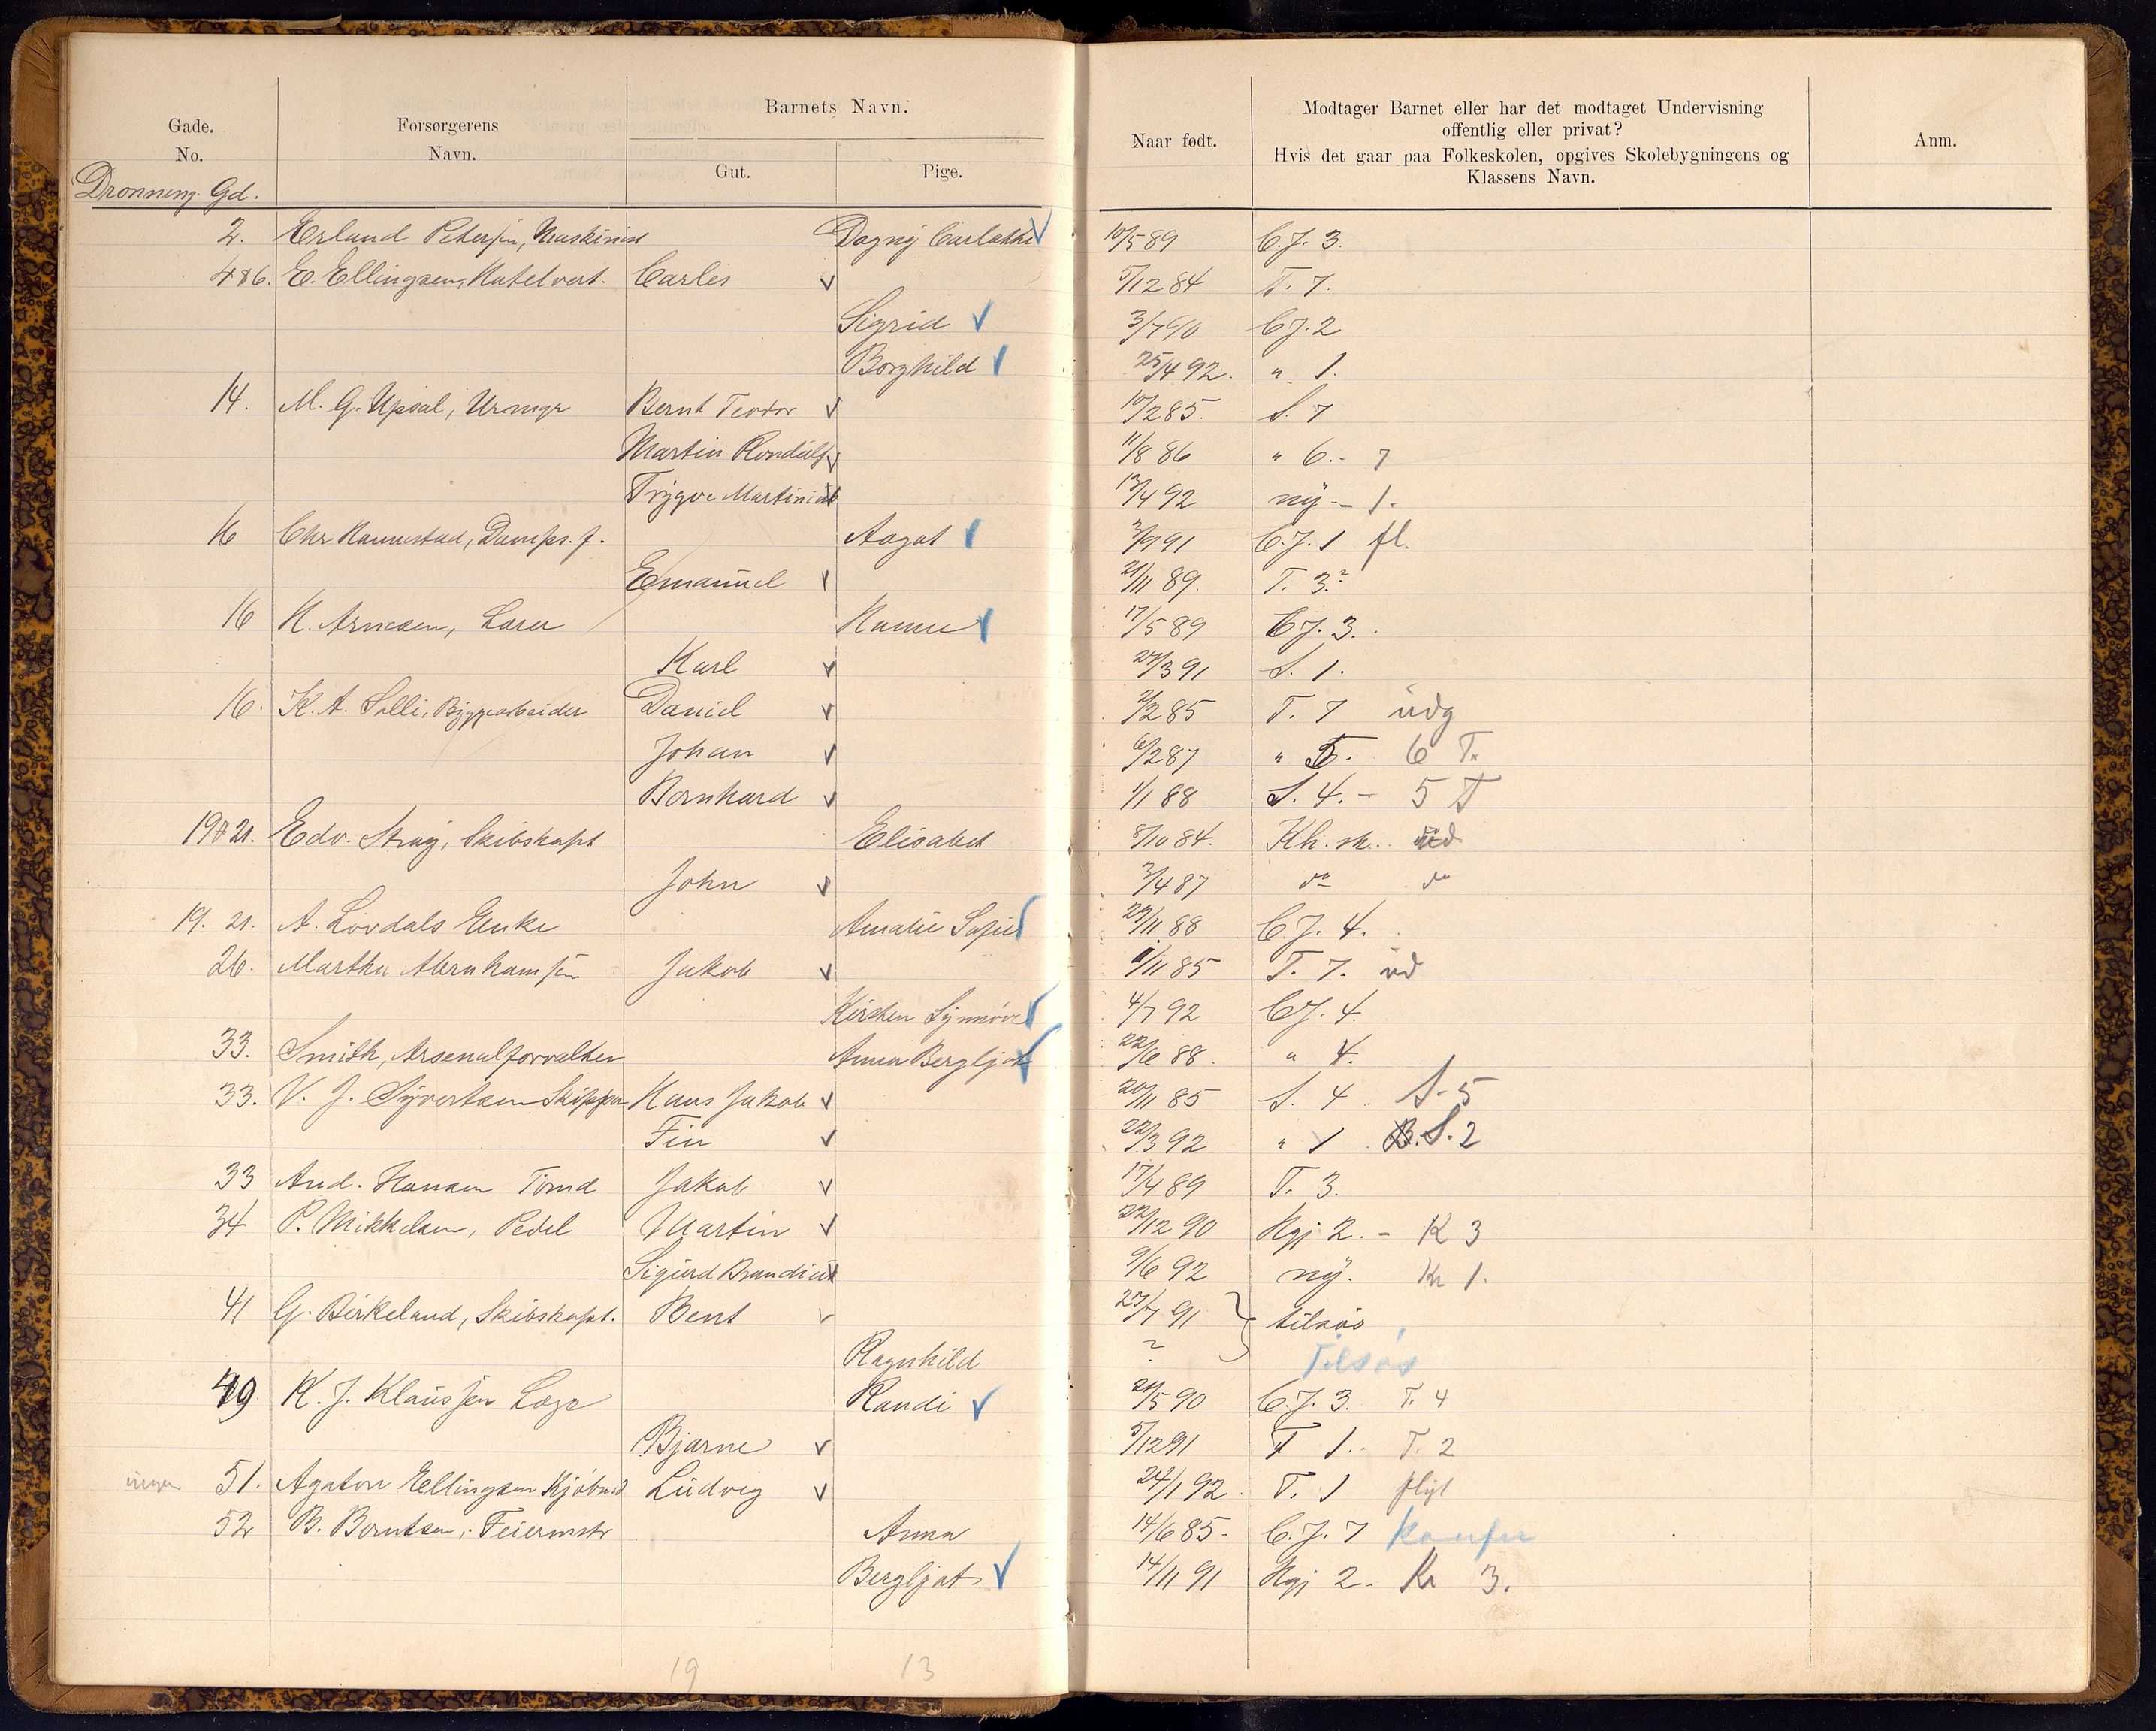 Gade.
No.
Forsørgerens
Navn.
Barnets Navn.
Gut.
Pige.
Naar født.
Modtager Barnet eller har det modtaget Undervisning
offentlig eller privat?
Hvis det gaar paa Folkeskolen, opgives Skolebygningens og
Klassens Navn.
Anm.
Dronning Gd.
2. Erland Petersen, Maskinist Dagny 10/5 89 C.J. 3.
4 & 6. E. Ellingsen, Hotelvert. Carles 5/12 84 T. 7.
Sigrid 3/7 90 CJ. 2
Borghild 25/4 92. " 1.
14. M. G. Upsal, Urmgr Bernt Teodor 10/2 85. S. 7
Martin 11/8 86 " 6. - 7
Trygve Martinius 13/4 92 ny - 1.
16 Chr Hannestad, Damps.f. Aagot 3/9 91 C.J. 1 fl.
Emanuel 21/11 89. T. 3.
16 N. Arnesen, Hanne 17/5 89 CJ. 3.
Karl 27/3 91 S. 1.
16. K. A. Solli, Byggearbeider Daniel 2/2 85 T. 7 udg
Johan 6/2 87 " 5. 6 T.
Bernhard 1/1 88 S. 4. - 5 T
19 & 21. Edv. Stray, Skibskapt Elisabet 8/10 84. Kh. sk. ud
John 3/4 87 do do
19. 21. A. Lovdals Enke Amalie Sofie 29/11 88 C.J. 4.
26. Martha Abrahamsen Jakob 1/11 85 T. 7. ud
Kirsten Synnøve 4/7 92 CJ. 4.
33. Smith, Arsenalforvalter Anna Bergljot 22/6 88. " 4.
33. V. J. Syvertsen Skipper Hans Jakob 20/11 85 S. 4. S. 5
Fin 22/3 92 " 1 B. S. 2
33 And. Hansen Tømd Jakob 17/4 89 T. 3.
34 P. Mikkelsen, Pedel Martin 22/12 90 Hgj 2. - K 3
Sigurd 9/6 92 ny. Kr 1.
41 G. Birkeland, Skibskapt. Bent 27/7 91 tilsøs
Ragnhild ? Tilsøs
49. K. J. Klaussen Læge Randi 21/5 90 C.J. 3. T. 4
Bjarne 5/12 91 T 1. - T. 2
51. Agaton Ellingsen Kjøbmd Ludvig 24/1 92. T. 1 flyt
52 B. Berntsen, Feiermstr Anna 14/6 85. C.J. 7 Konfir
Bergljot 14/11 91 Hgj 2. Kr 3.
19 13